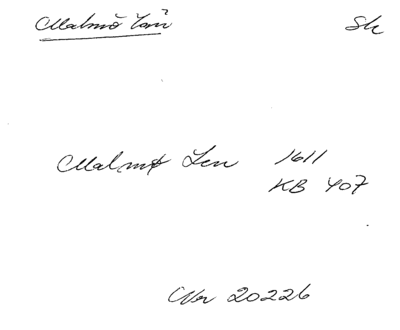 Malmö Län Sk
Malmø Len 1611
KB 407
Nr 20226